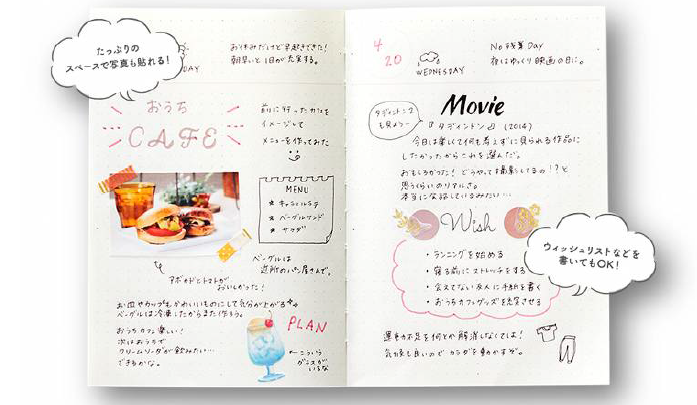 たっぷりの
スペースで写真も貼れる!
DAY
お休みだけど早起きできた!
朝早いと1日が充実する。
おうち
CAFE
前に行ったカフェを
イメージして
メニューを作ってみた
MENU
★ キャラメルラテ
★ ベーグルサンド
★ サラダ
ベーグルは
近所のパン屋さんで。
アボカドとトマトが
おいしかった!
お皿やカップもかわいいものにして気分が上がる
ベーグルは冷凍したからまた作ろう。
おうちカフェ楽しい!
次はおうちで
クリームソーダが飲みたい…
できるかな。
PLAN
←こういう
グラスが
いるな
4
20
WEDNESDAY
No残業Day
夜はゆっくり映画の日に。
Movie
パディントン2
も見よう〜
『パディントン』(2014)
今日は楽しくて何も考えずに見られる作品に
したかったからこれを選んだ。
おもしろかった! どうやって撮影してるの!?と
思うくらいのリアルさ。
本当に実在しているみたい…
Wish
・ランニングを始める
・寝る前にストレッチをする
・会えてない友人に手紙を書く
・おうちカフェグッズを充実させる
ウィッシュリストなどを
書いてもOK!
運動不足を何とか解消しなくてはよ!
気候も良いのでカラダを動かすぞ。